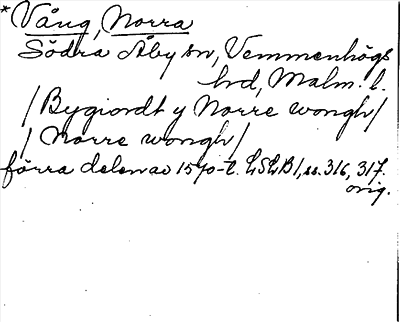 *Vång, Norra
Södra Åby sn, Vemmenhögs
hd, Malm. l.
/Bygiordt y Norre wongh/
/Norre wongh/
förra delen av 1570-t. LSLB1, ss. 316, 317.
orig.